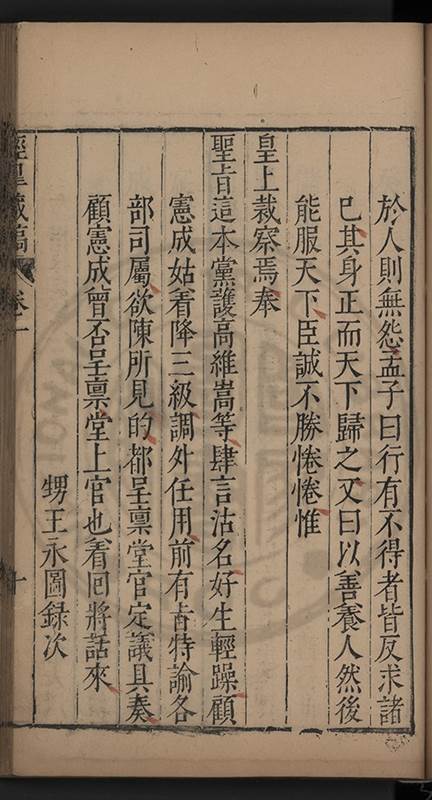 於人則無怨孟子曰行有不得者皆反求諸
己其身正而天下歸之又曰以善養人然後
能服天下臣誠不勝惓惓惟
皇上裁察焉奉
聖旨這本黨護高維嵩等肆言沽名好生輕躁顧
憲成姑着降三級調外任用前有旨特諭各
部司屬欲陳所見的都呈稟堂官定議具奏
顧憲成曾否呈稟堂上官也着回將話來
甥王永圖錄次
涇皋藏稿 卷一 十